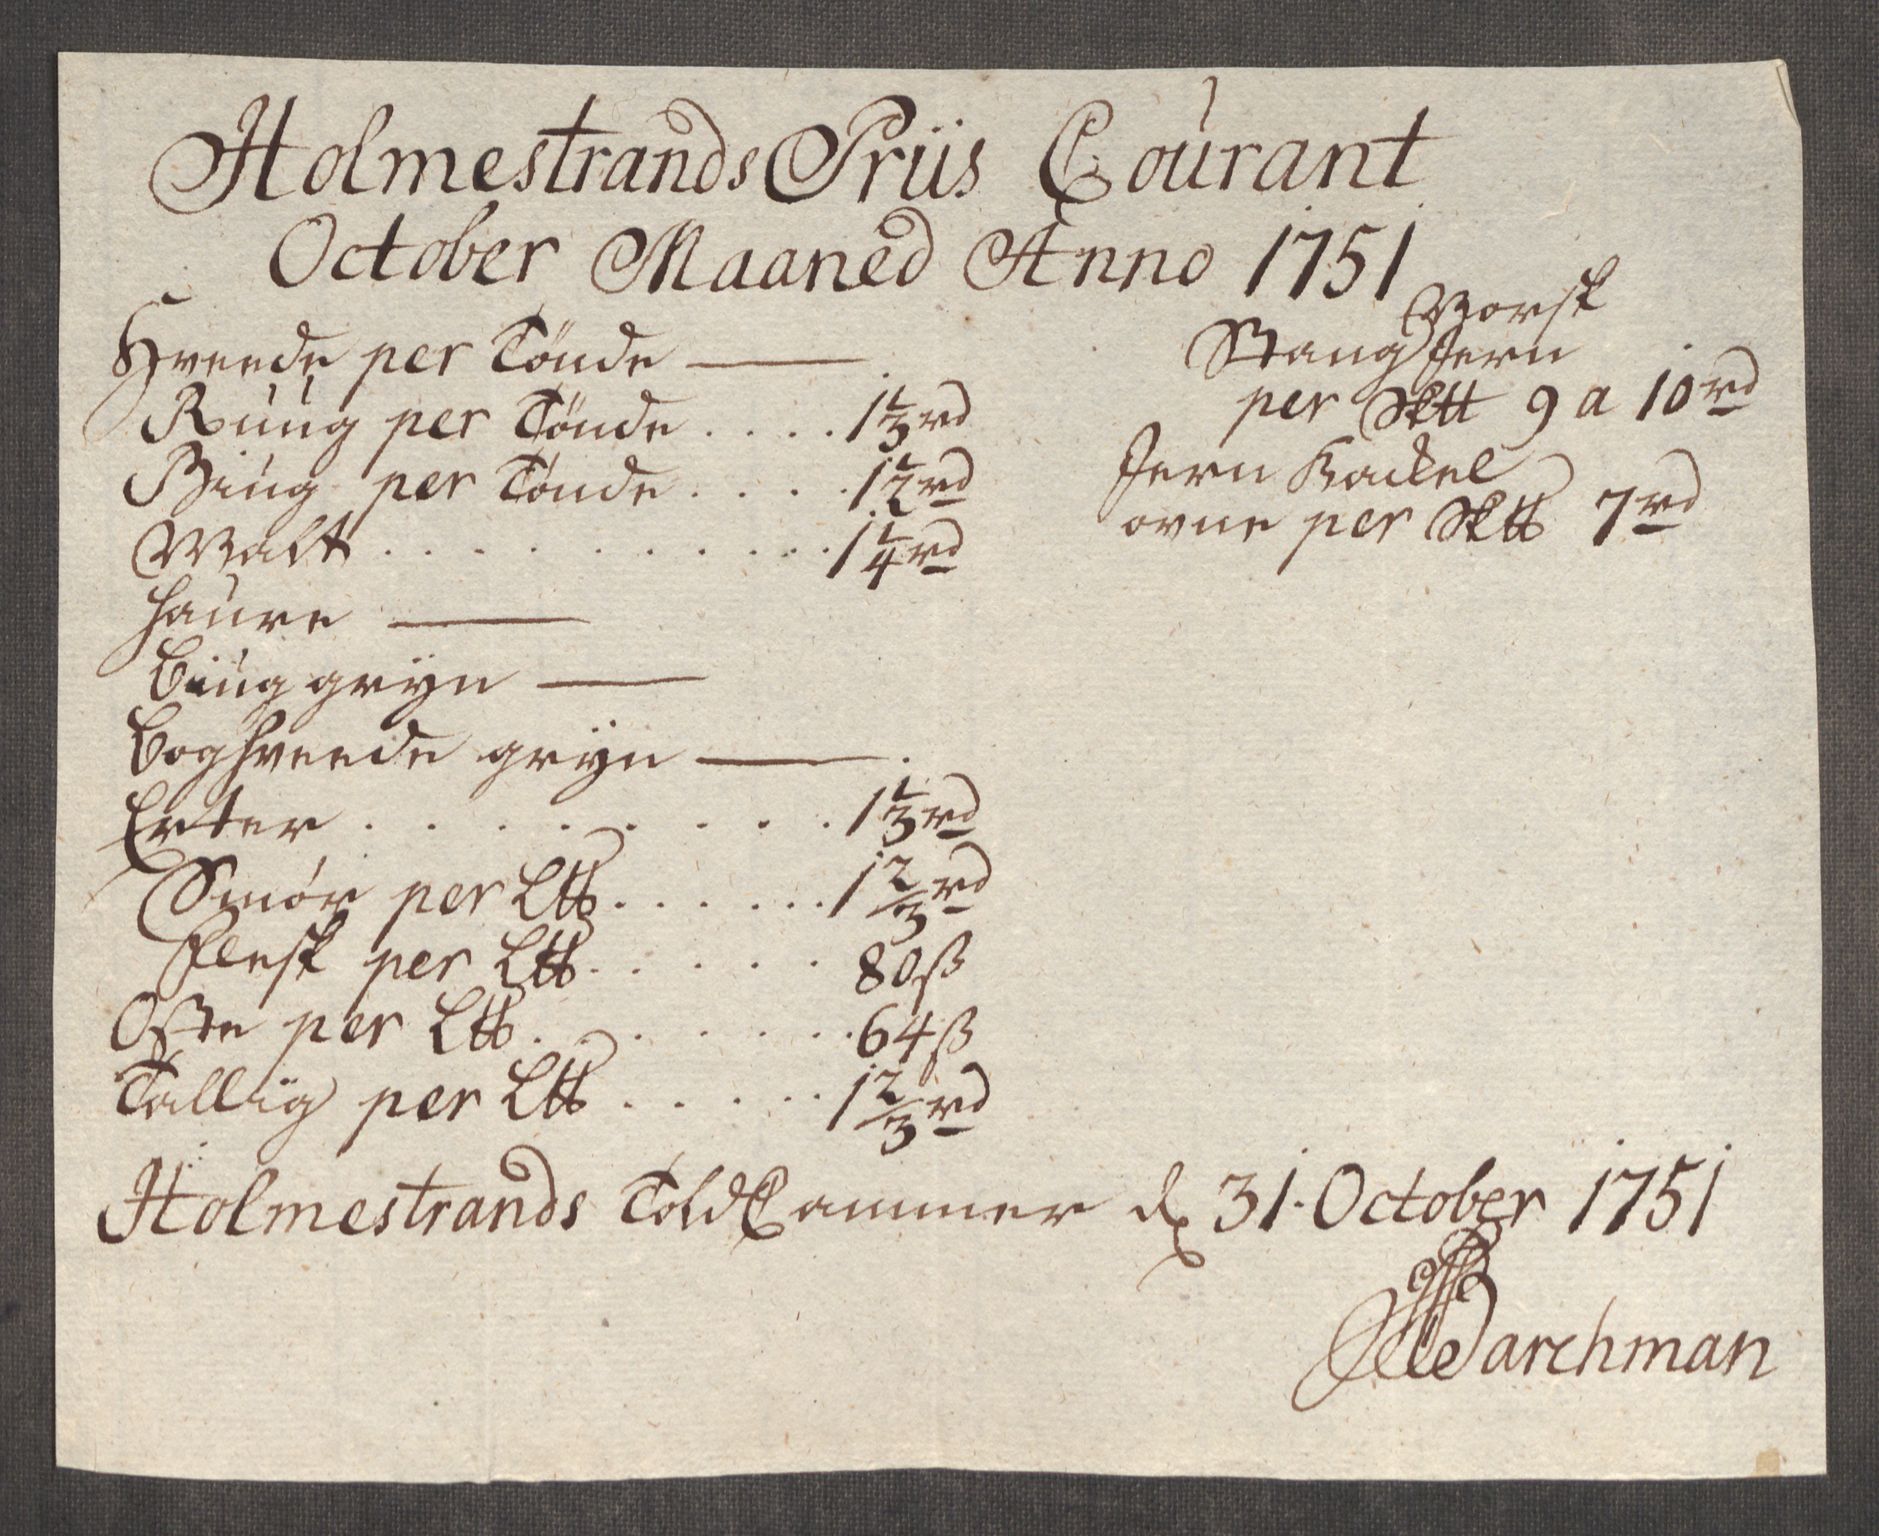 Holmestrands Priis Courant
October Maaned Anno 1751
Hveede per Tönde ———
Rúúg per Tönde . . . . 1⅓ rd
Biúg per Tönde . . . . 1½ rd
Malt . . . . . . . . . 1¼ rd
haúre ———
Biúg grÿn ———
Boghveede grÿn ———
Erter . . . . . . . . . 1⅓ rd
Smör per L℔ . . . . . . 1⅔ rd
Flesk per L℔ . . . . . 80 ß
Oste per L℔ . . . . . . 64 ß
Tallig per L℔ . . . . . 1⅔ rd
Norsk
Stang Jern
per Sk℔ 9 a 10 rd
Jern Kackel
ovne per Sk℔ 7 rd
Holmestrands Told Cammer d 31. October 1751
Warchman